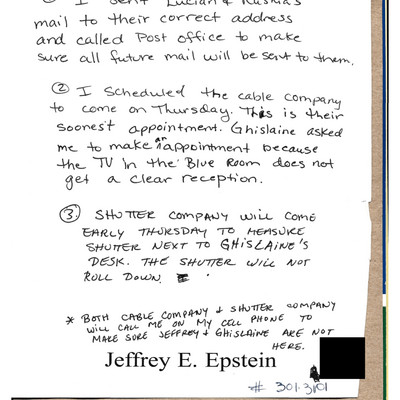 ① I sent Lucian &
mail to their correct address
and called Post office to make
sure all future mail will be sent to them.
② I Scheduled the cable company
to come on Thursday. This is their
soonest appointment. Ghislaine asked
me to make an appointment because
the TV in the Blue Room does not
get a clear reception.
③ SHUTTER COMPANY WILL COME
EARLY THURSDAY TO MEASURE
SHUTTER NEXT TO GHISLAINE'S
DESK. THE SHUTTER WILL NOT
ROLL DOWN.
* BOTH CABLE COMPANY & SHUTTER COMPANY
WILL CALL ME ON MY CELL PHONE TO
MAKE SURE JEFFREY & GHISLAINE ARE NOT
HERE.
Jeffrey E. Epstein
# 301.3101